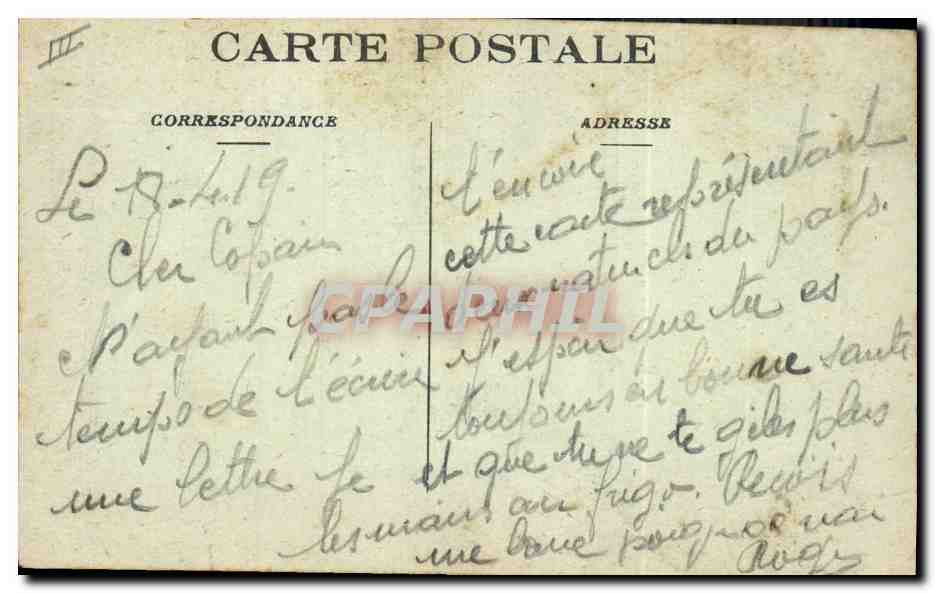 III
CARTE POSTALE
CORRESPONDANCE
ADRESSE
Le 18-4-19.
Cher Copain
N'ayant pas le
temps de t'écrire
une lettre je
t'envoie
cette carte représentant
deux naturels du pays.
J'espère que tu es
toujours en bonne santé
et que tu ne te gèles plus
les mains au frigo. Reçois
une bonne poignée de main
Roger
CPAPHIL